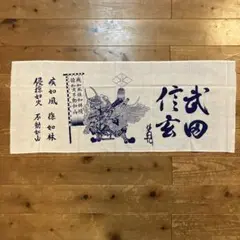 武田
信玄
疾如風 徐如林
侵掠如火 不動如山